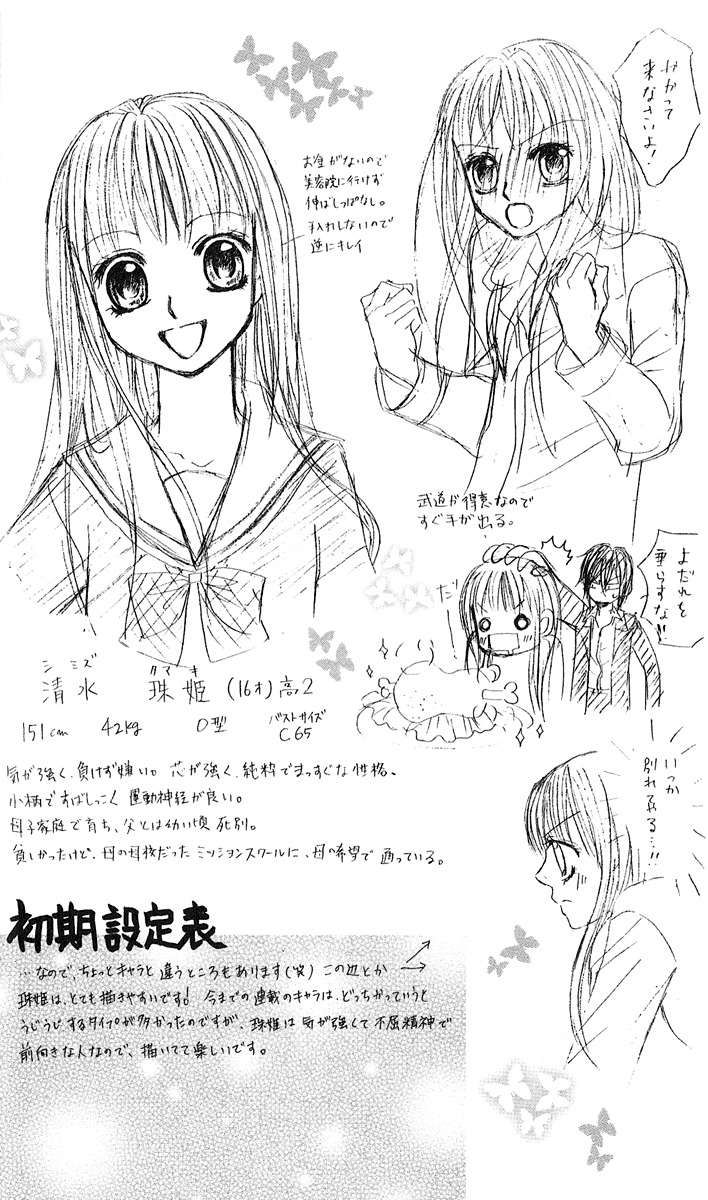 かかって
来なさいよ!
お金がないので
美容院に行けず
伸ばしっぱなし。
手入れしないので
逆にキレイ
武道が得意なので
すぐ手が出る。
よだれを
垂らすな!!
だー
シミズ タマキ
清水 珠姫 (16才) 高2
151cm 42kg O型 バストサイズ
C65
気が強く、負けず嫌い。芯が強く、純粋でまっすぐな性格。
小柄ですばしっこく 運動神経が良い。
母子家庭で育ち、父とは幼い頃 死別。
貧しかったけど、母の母校だった ミッションスクールに、母の希望で 通っている。
いつか
別れてやる…!!
初期設定表
…なので、ちょっとキャラと 違うところもあります(笑) この辺とか
珠姫は、とても描きやすいです! 今までの連載のキャラは、どっちかっていうと
うじうじするタイプが多かったのですが、珠姫は 気が強くて 不屈精神で
前向きな人なので、描いてて楽しいです。